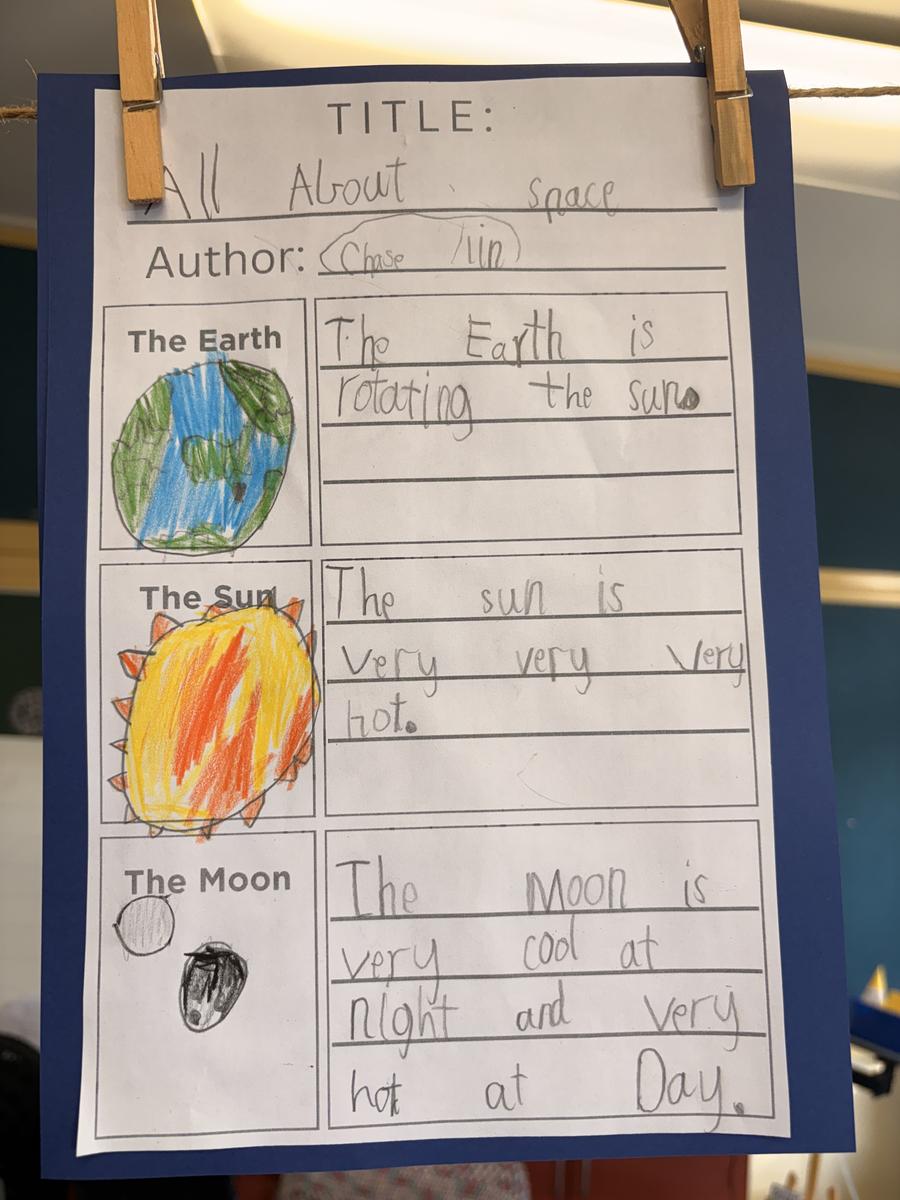 TITLE:
All About space
Author: Chase lin
The Earth
The Earth is
rotating the sun.
The Sun
The sun is
very very very
hot.
The Moon
The Moon is
very cool at
night and very
hot at Day.